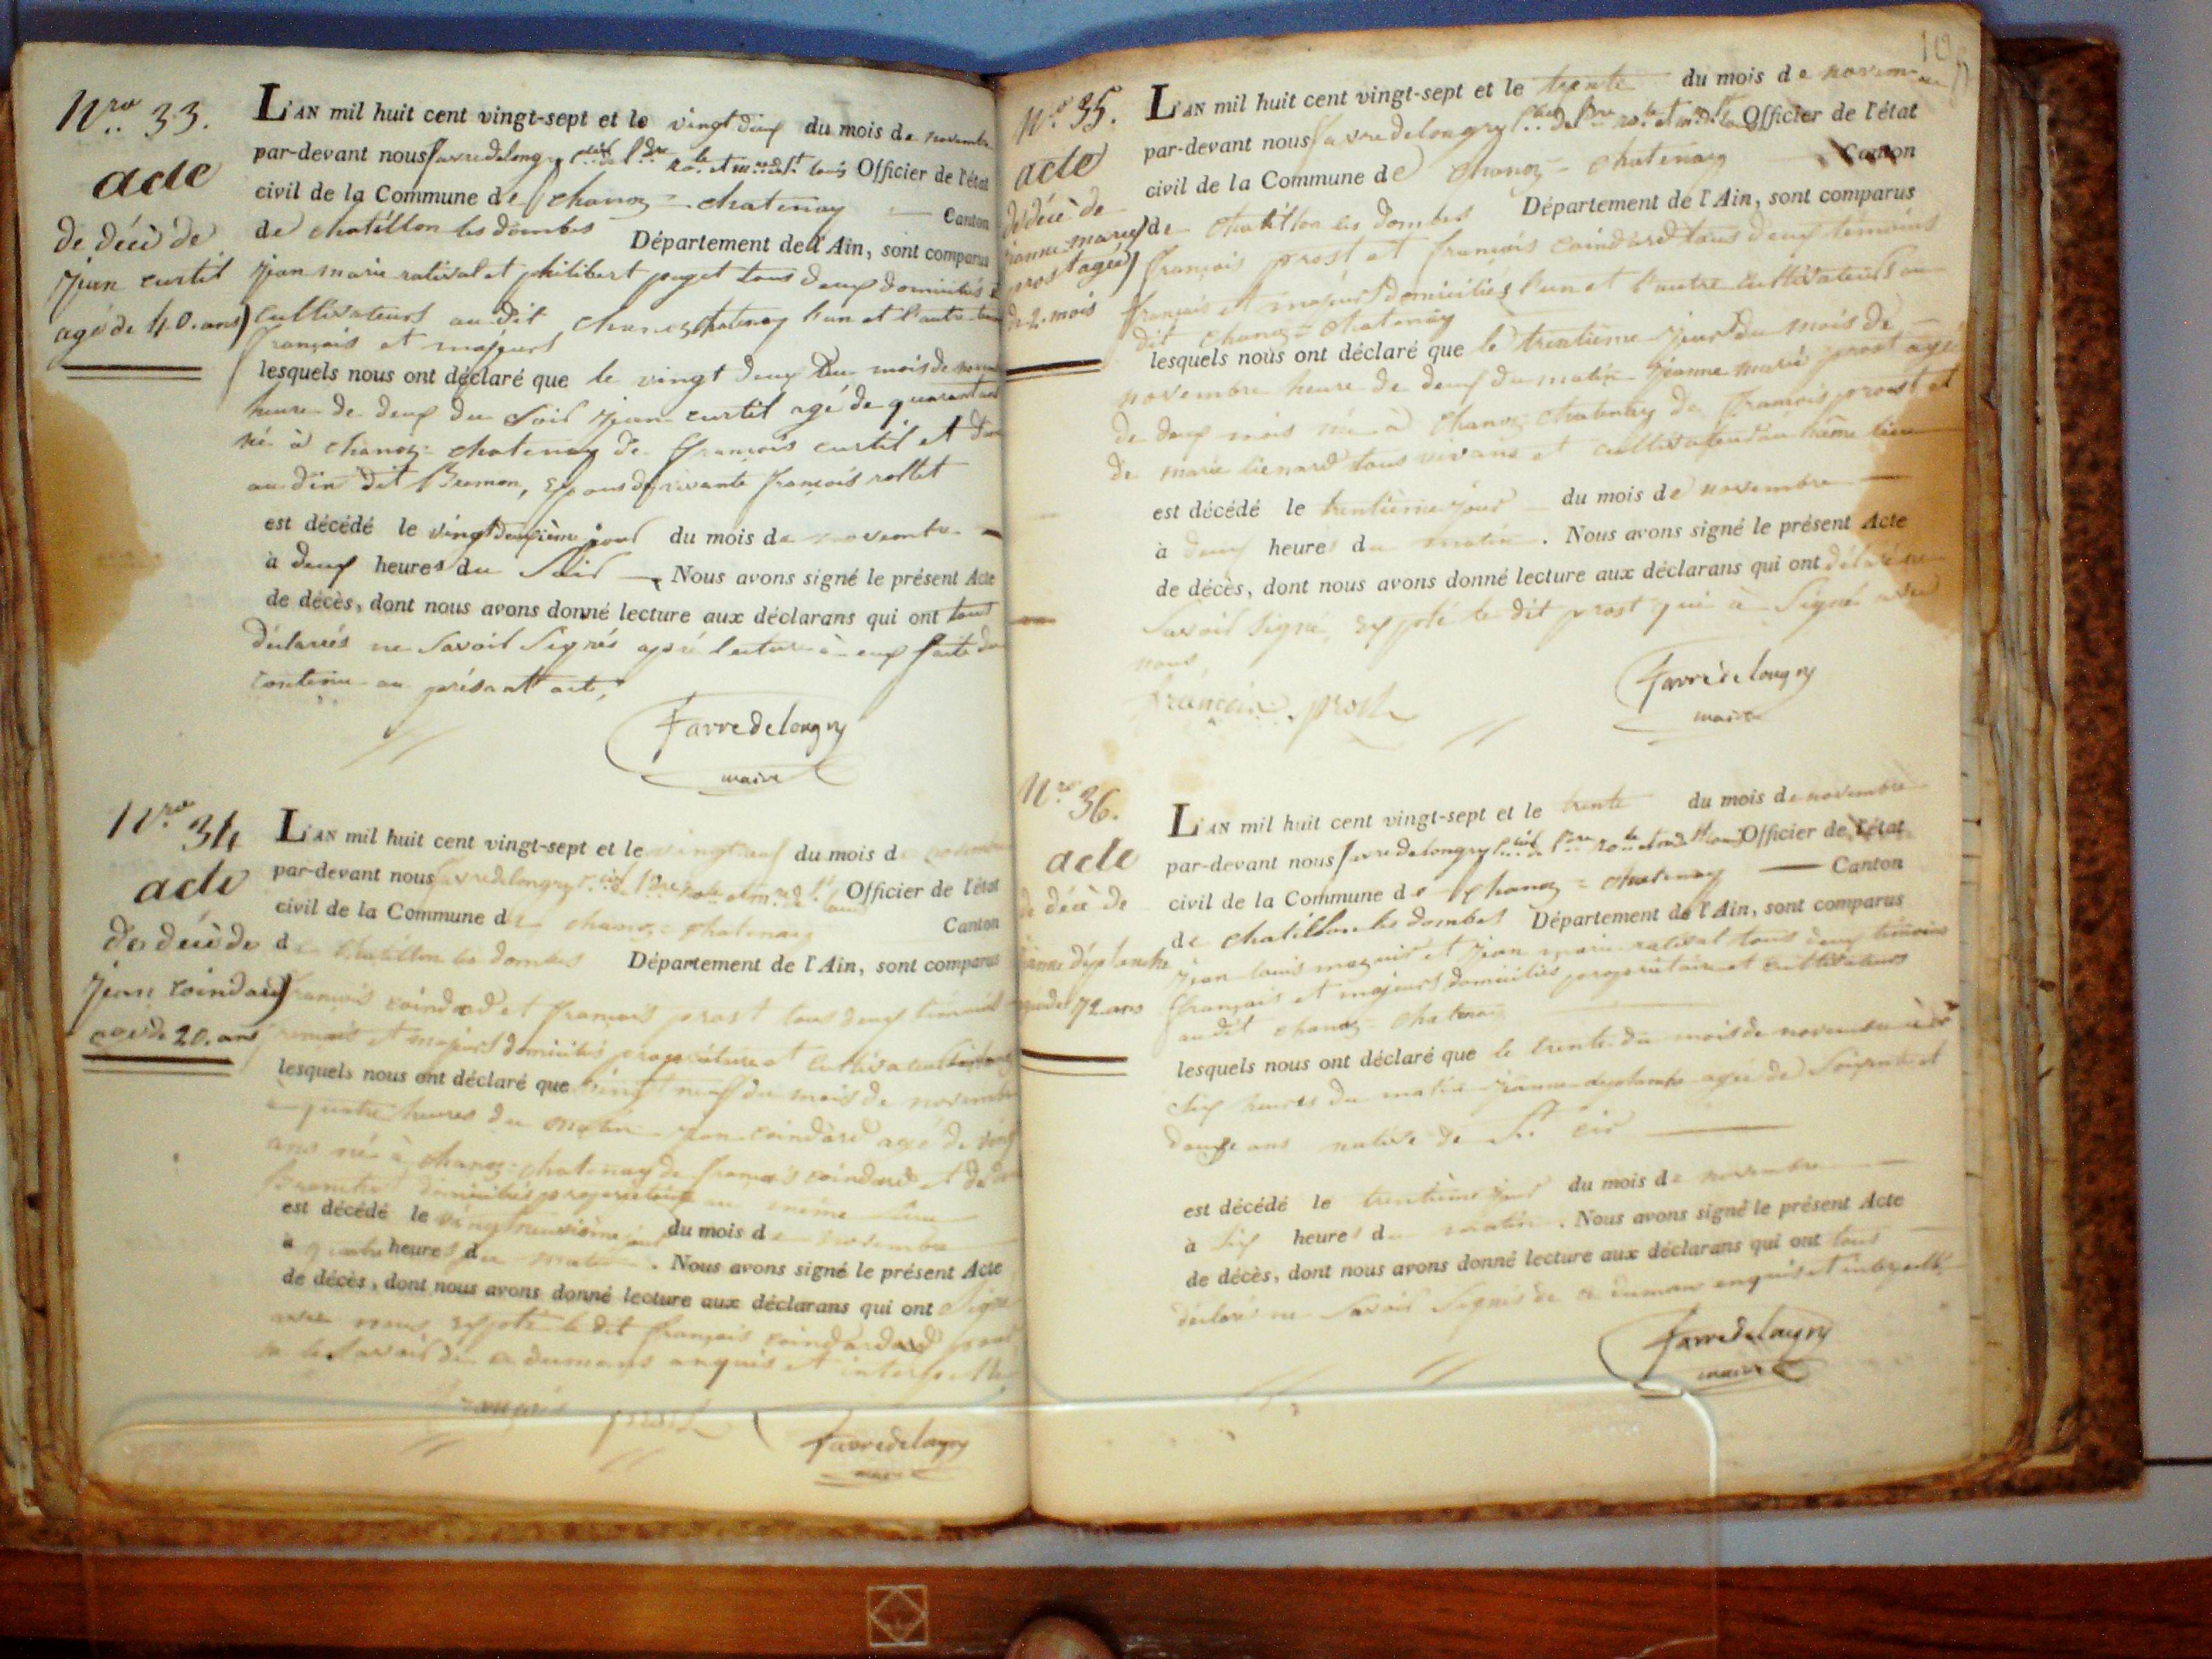 Nro 33.
acte
de décè de
Jean curtil
agé de 40. ans
L'AN mil huit cent vingt-sept et le vingt deux du mois de novembre
par-devant nous favredelongry Officier de l'état
civil de la Commune de chanoz = chatenay Canton
de chatillon les dombes Département de l'Ain, sont comparus
Jean marie rativat et philibert puget tous deux domiciliés
Cultivateurs au dit chanoz chatenay l'un et l'autre
français et majeurs
lesquels nous ont déclaré que le vingt deux du mois de
heure de deux du soir Jean curtil agé de quarante
né à chanoz = chatenay de françois curtil et
au din dit Bremon, Epous de vivante françois rollet
est décédé le vingt deuxième jour du mois de novembre
à deux heures du Soir Nous avons signé le présent Acte
de décès, dont nous avons donné lecture aux déclarans qui ont tous
déclarés ne Savoir Signés apré lecture à eux faite du
contenu au présant acte,
favredelongry
maire
Nro 34
acte
de décè de
Jean coindard
agé de 20. ans
L'AN mil huit cent vingt-sept et le vingt neuf du mois de novembre
par-devant nous favredelongry Officier de l'état
civil de la Commune de chanoz = chatenay Canton
de chatillon les dombes Département de l'Ain, sont comparus
françois coindard et françois prost tous deux témoins
français et majeurs domiciliés propriétaire et cultivateur
lesquels nous ont déclaré que vingt neuf du mois de novembre
a quatre heures du matin Jean coindard agé de vingt
ans né à chanoz = chatenay de françois coindard et de
domiciliés propriétaire au même lieu
est décédé le vingt neuvième jour du mois de novembre
à quatre heures du matin. Nous avons signé le présent Acte
de décès, dont nous avons donné lecture aux déclarans qui ont Signé
avec nous, exepté le dit françois coindard pour
ne le savoir de ce dumant anquis et interpellé
françois prost
favredelongry
maire
No 35.
acte
de décè de
jeanne marie
prost agée
de 2. mois
L'AN mil huit cent vingt-sept et le trente du mois de novembre
par-devant nous favredelongry Officier de l'état
civil de la Commune de chanoz = chatenay Canton
de chatillon les dombes Département de l'Ain, sont comparus
françois prost et françois coindard tous deux témoins
français et majeurs domiciliés l'un et l'autre cultivateurs au
dit chanoz = chatenay
lesquels nous ont déclaré que le trentième jour du mois de
novembre heure de deux du matin Jeanne marie prost agé
de deux mois né à chanoz = chatenay de françois prost et
de marie lienard tous vivans et cultivateur au même lieu
est décédé le trentième jour du mois de novembre
à deux heures du matin. Nous avons signé le présent Acte
de décès, dont nous avons donné lecture aux déclarans qui ont déclaré ne
Savoir Signé, exepté le dit prost qui à Signé avec
nous,
françois. prost
favredelongry
maire
Nro 36.
acte
de décè de
jeanne déplanche
agée de 72 ans
L'AN mil huit cent vingt-sept et le trente du mois de novembre
par-devant nous favredelongry Officier de l'état
civil de la Commune de chanoz = chatenay Canton
de chatillon les dombes Département de l'Ain, sont comparus
Jean louis maguit et Jean marie rativat tous deux témoins
français et majeurs domiciliés propriétaire et cultivateurs
audit chanoz = chatenay
lesquels nous ont déclaré que le trente du mois de novembre à
Six heures du matin Jeanne deplanche agée de Soixante et
douze ans native de St cir
est décédé le trentième jour du mois de novembre
à Six heures du matin. Nous avons signé le présent Acte
de décès, dont nous avons donné lecture aux déclarans qui ont tous
déclaré ne Savoir Signés de ce dumant enquis et interpellé
favredelongry
maire